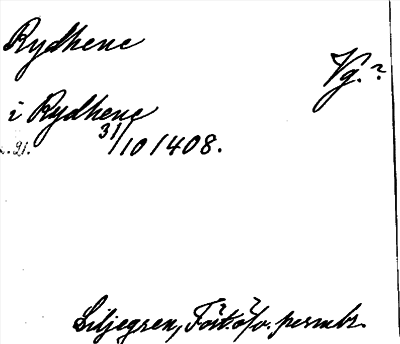 Rydhene
Vg.?
i Rydhene
31/10 1408.
Liljegren, Fört. ö/v. permbr.